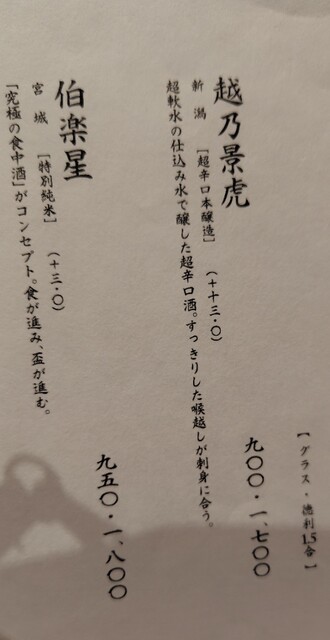 【グラス・徳利1.5合】
越乃景虎
新潟 [超辛口本醸造] (+十三・〇) 九〇〇・一、七〇〇
超軟水の仕込み水で醸した超辛口酒。すっきりした喉越しが刺身に合う。
伯楽星
宮城 [特別純米] (+三・〇) 九五〇・一、八〇〇
「究極の食中酒」がコンセプト。食が進み、盃が進む。